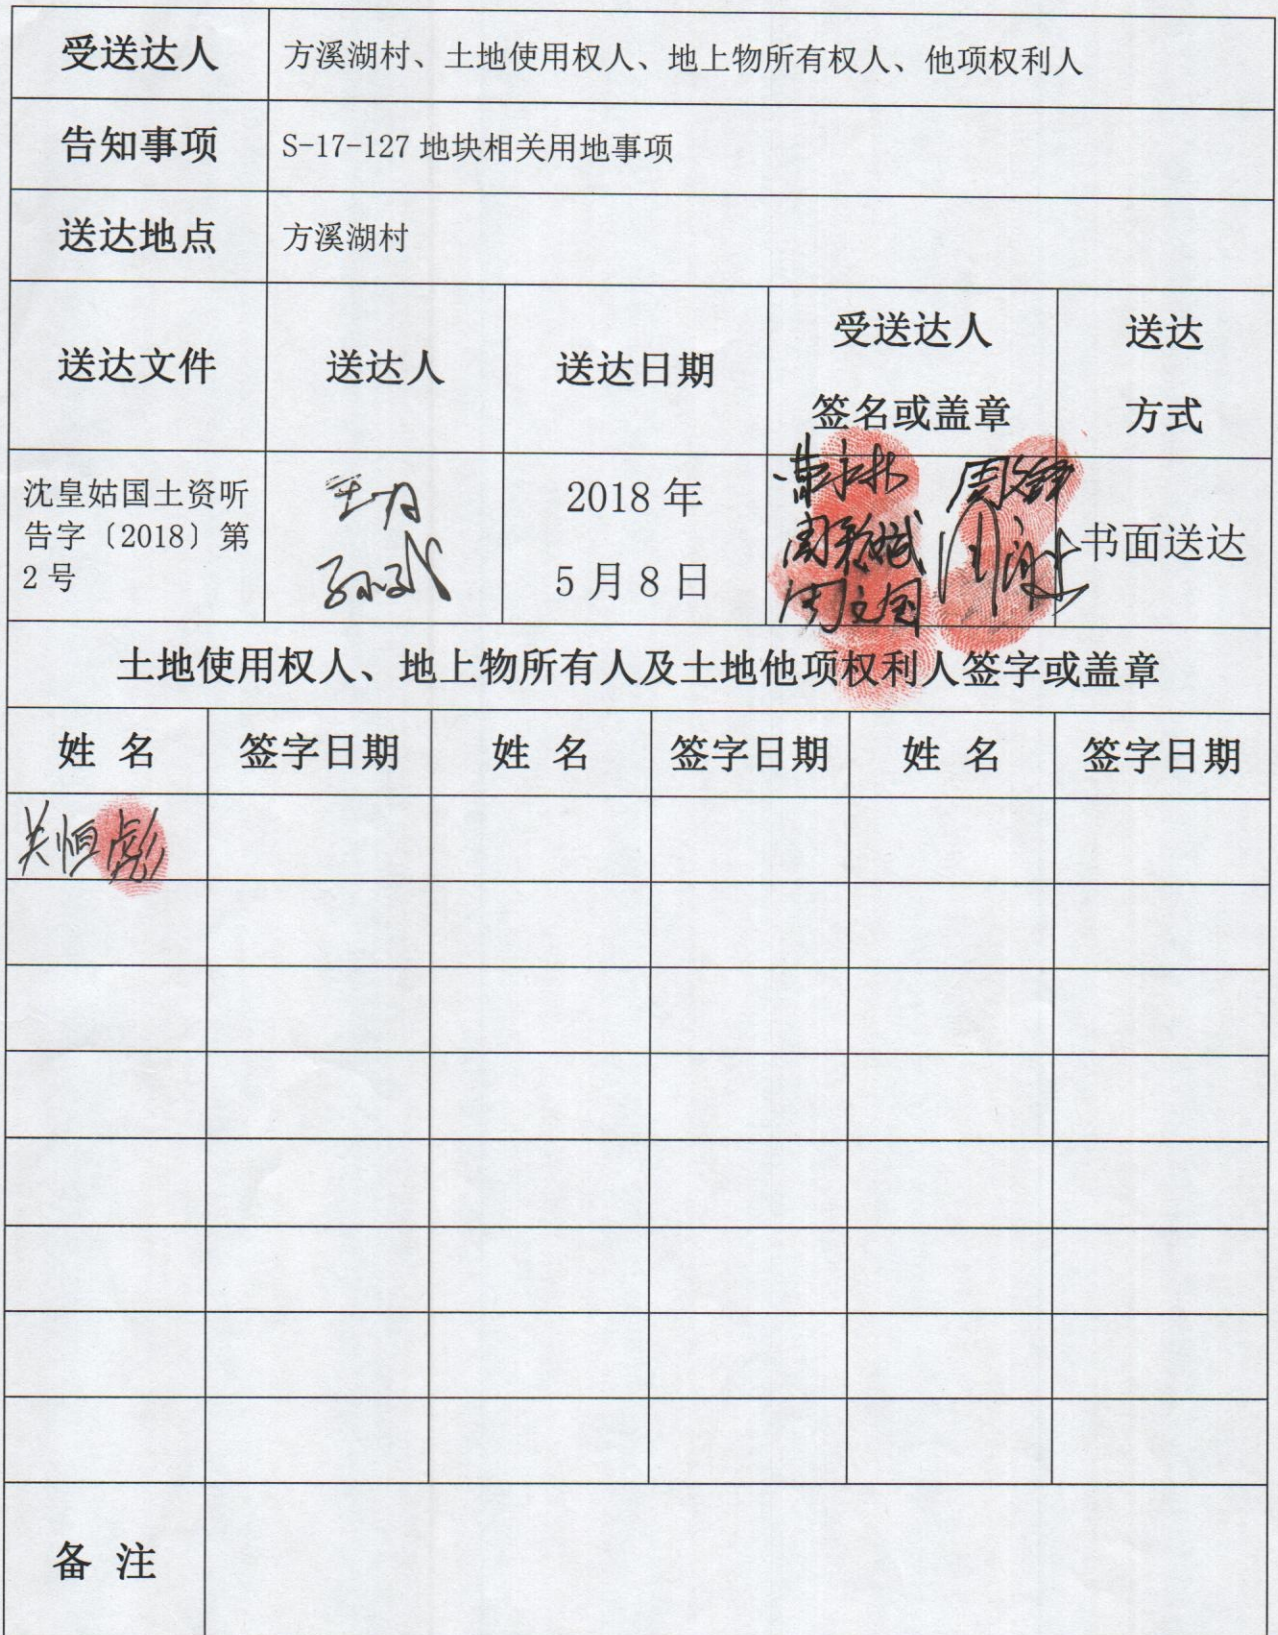 受送达人
方溪湖村、土地使用权人、地上物所有权人、他项权利人
告知事项
S-17-127 地块相关用地事项
送达地点
方溪湖村
送达文件
送达人
送达日期
受送达人
签名或盖章
送达
方式
沈皇姑国土资听
告字〔2018〕第
2 号
2018 年
5 月 8 日
周文国
书面送达
土地使用权人、地上物所有人及土地他项权利人签字或盖章
姓 名
签字日期
姓 名
签字日期
姓 名
签字日期
关恒彪
备 注